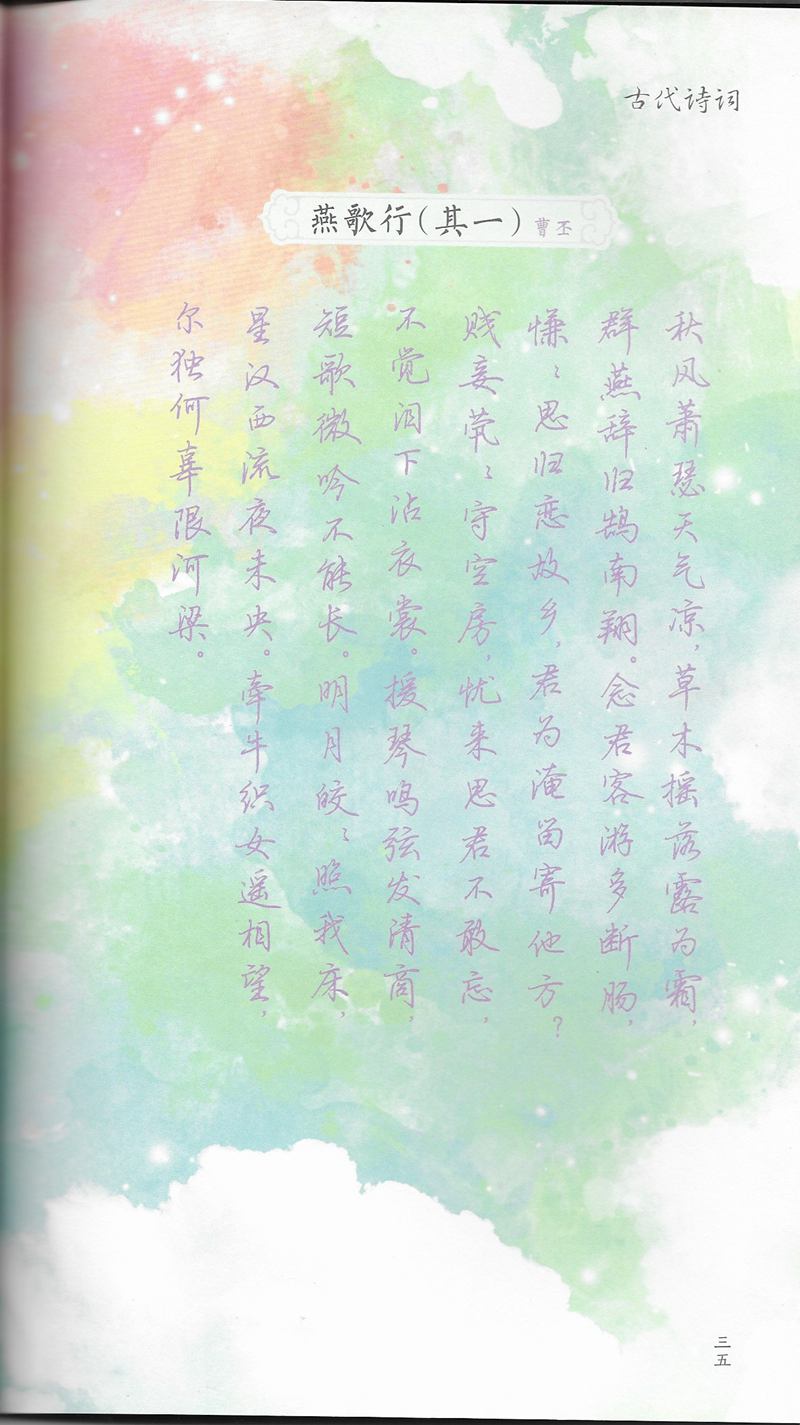 古代诗词
燕歌行(其一) 曹丕
秋风萧瑟天气凉,草木摇落露为霜,
群燕辞归鹄南翔。念君客游多断肠,
慊〻思归恋故乡,君为淹留寄他方?
贱妾茕〻守空房,忧来思君不敢忘,
不觉泪下沾衣裳。援琴鸣弦发清商,
短歌微吟不能长。明月皎〻照我床,
星汉西流夜未央。牵牛织女遥相望,
尔独何辜限河梁。
三五